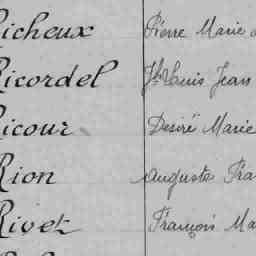 Richeux Pierre Marie
Ricordel Jh Louis Jean
Ricour Desiré Marie
Rion Auguste Fra
Rivet François Ma